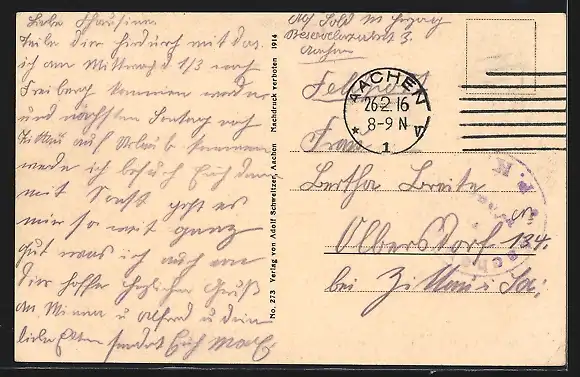 Liebe
Teile dir hierdurch mit das
ich am Mittwoch d. 1/3 nach
Freiberg kommen werde
und nächsten Sonntag nach
Zittau auf Urlaub kommen
werde ich besuch Euch dann
mit Sonst geht es
mir so weit ganz
gut was ich auch von
dir hoffe herzlichen Gruß
an Minna u Alfred u dein
liebe Eltern sendet Euch Max
No. 273 Verlag von Adolf Schweitzer, Aachen Nachdruck verboten 1914
Abs Sold M
Reservelazarett 3.
Aachen
Feldpost
AACHEN
26.2.16
8-9 N
* 1 V
Frau
Bertha Breite
in
Olbersdorf 134.
bei Zittau i Sa.